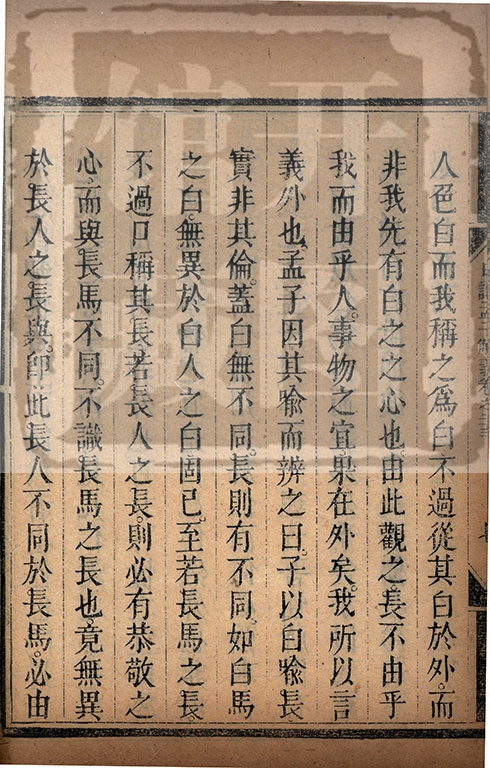 人色白而我稱之爲白不過從其白於外而
非我先有白之之心也由此觀之長不由乎
我而由乎人事物之宜果在外矣我所以言
義外也孟子因其喻而辨之曰子以白喻長
實非其倫蓋白無不同長則有不同如白馬
之白無異於白人之白固已至若長馬之長
不過口稱其長若長人之長則必有恭敬之
心而與長馬不同不識長馬之長也竟無異
於長人之長與卽此長人不同於長馬必由